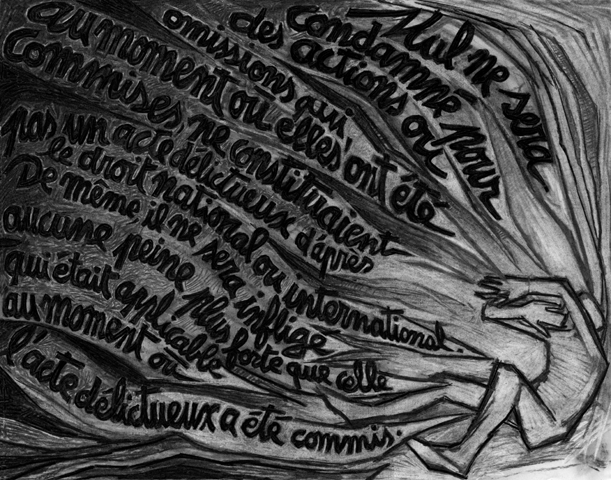 Nul ne sera
condamné pour
des actions ou
omissions qui
au moment où elles ont été
Commises ne constituaient
pas un acte délictueux d'après
le droit national ou international.
De même il ne sera inflige
aucune peine plus forte que celle
qui était applicable
au moment où
l'acte délictueux a été commis.